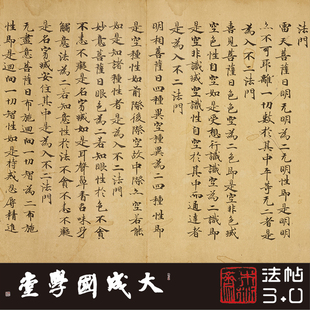 法門
雷天菩薩曰明无明為二无明性即是明明
亦不可取離一切數於其中平等无二者是
為入不二法門
喜見菩薩曰色色空為二色即是空非色滅
空色性自空如是受想行識識空為二識即
是空非識滅空識性自空於其中而通達者
是為入不二法門
明相菩薩曰四種異空種異為二四種性即
是空種性如前際後際空故中際亦空若能
如是知諸種性者是為入不二法門
妙意菩薩曰眼色為二若知眼性於色不貪
不恚不癡是名寂滅如是耳聲鼻香舌味身
觸意法為二若知意性於法不貪不恚不癡
是名寂滅安住其中是為入不二法門
无盡意菩薩曰布施迴向一切智為二布施
性即是迴向一切智性如是持戒忍辱精進
大成國學堂
法帖
3.0